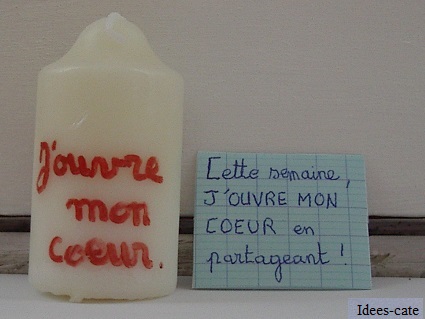 J'ouvre
mon
coeur.
Cette semaine,
J'OUVRE MON
COEUR en
partageant !
Idees-cate